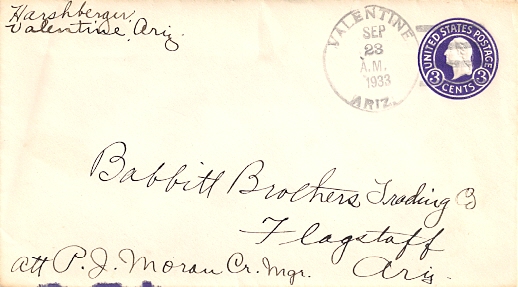 Harshberger,
Valentine, Ariz.
VALENTINE
SEP
23
A.M.
1933
ARIZ.
UNITED STATES POSTAGE
3 CENTS 3
Babbitt Brothers Trading Co
Flagstaff
Ariz.
att P. J. Moran Cr. Mgr.